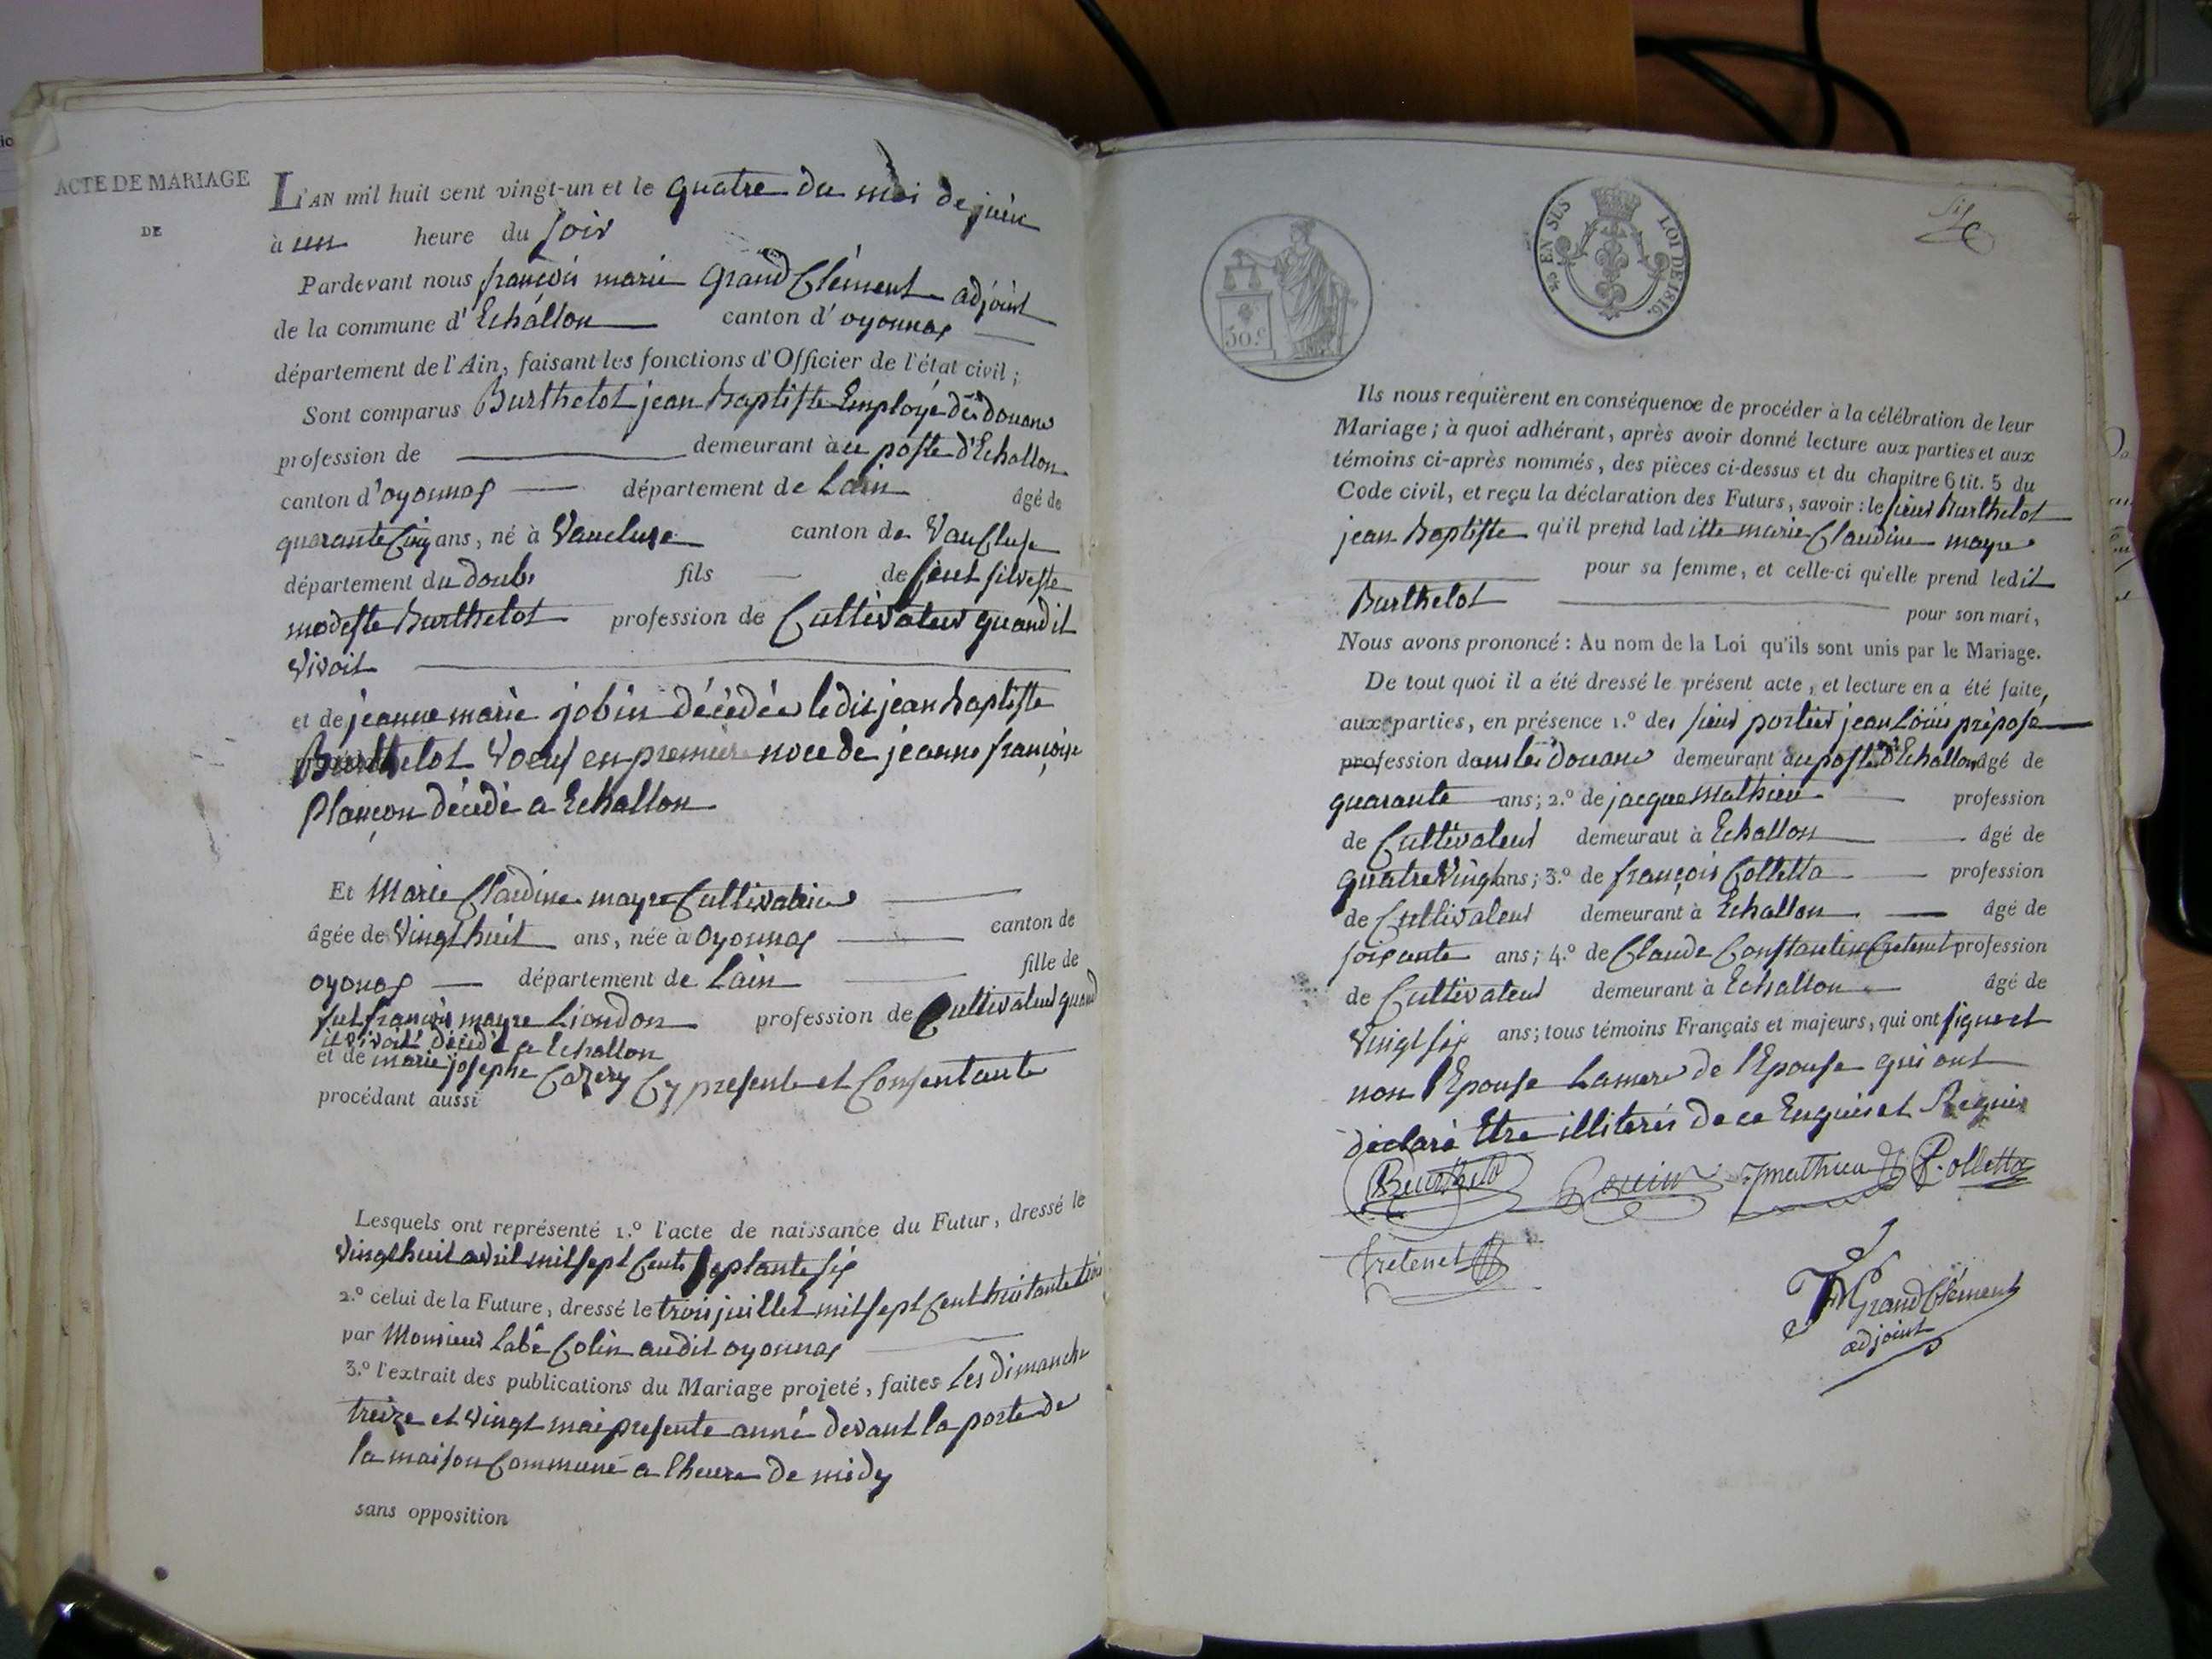 ACTE DE MARIAGE
DE
L'AN mil huit cent vingt-un et le quatre du moi de juin
à un heure du soir
Pardevant nous françois marie Grand Clément adjoint
de la commune d'Echallon canton d'oyonnax
département de l'Ain, faisant les fonctions d'Officier de l'état civil ;
Sont comparus Burthelot jean baptiste Employé des douane
profession de demeurant à au poste d'Echallon
canton d'oyonnax département de Lain âgé de
quarante Cinq ans, né à Vaucluse canton de Vaucluse
département du doubs fils de feut silvestre
modeste Burthelot profession de Cultivateur quand il
vivoit
et de jeanne marie jobin décédée ledit jean baptiste
Burthelot voeuf en premiere noce de jeanne françoise
Plançon décédé a Echallon
Et Marie Claudine mayre Cultivatrice
âgée de vingt huit ans, née à Oyonnax canton de
oyonax département de Lain fille de
fut françois mayre Liondon profession de Cultivateur quand
il vivoit décédé a Echallon
et de marie josephe Cazery Cy presente et Consentante
procédant aussi
Lesquels ont représenté 1.º l'acte de naissance du Futur, dressé le
vingt huit avril mil sept Cent septante six
2.º celui de la Future, dressé le trois juillet mil sept Cent huitante trois
par Monsieur Labé Colin audit oyonnax
3.º l'extrait des publications du Mariage projeté, faites Les dimanche
treize et vingt mai presente anné devant la porte de
la maison Commune a lheure de midy
sans opposition
50 c.
EN SUS
LOI DE 1816.
Ils nous requièrent en conséquence de procéder à la célébration de leur
Mariage ; à quoi adhérant, après avoir donné lecture aux parties et aux
témoins ci-après nommés, des pièces ci-dessus et du chapitre 6 tit. 5 du
Code civil, et reçu la déclaration des Futurs, savoir : le sieur Burthelot
jean baptiste qu'il prend lad itte marie Claudine mayre
pour sa femme, et celle-ci qu'elle prend ledit
Burthelot pour son mari,
Nous avons prononcé : Au nom de la Loi qu'ils sont unis par le Mariage.
De tout quoi il a été dressé le présent acte, et lecture en a été faite,
aux parties, en présence 1.º de sieur portier jean Louis préposé
profession dans les douane demeurant au poste d'Echallon âgé de
quarante ans ; 2.º de jacque mathieu profession
de Cultivateur demeurant à Echallon âgé de
quatre vingt ans ; 3.º de françois Colletta profession
de Cultivateur demeurant à Echallon âgé de
soixante ans ; 4.º de Claude Constantin Cretenet profession
de Cultivateur demeurant à Echallon âgé de
vingt six ans ; tous témoins Français et majeurs, qui ont signé et
non l'Epouse Lamere de l'Epouse qui ont
déclaré Etre illiterés de ce Enquis et Requis
Burthelot
J mathieu
F. Colletta
Cretenet
FM Grand Clément
adjoint